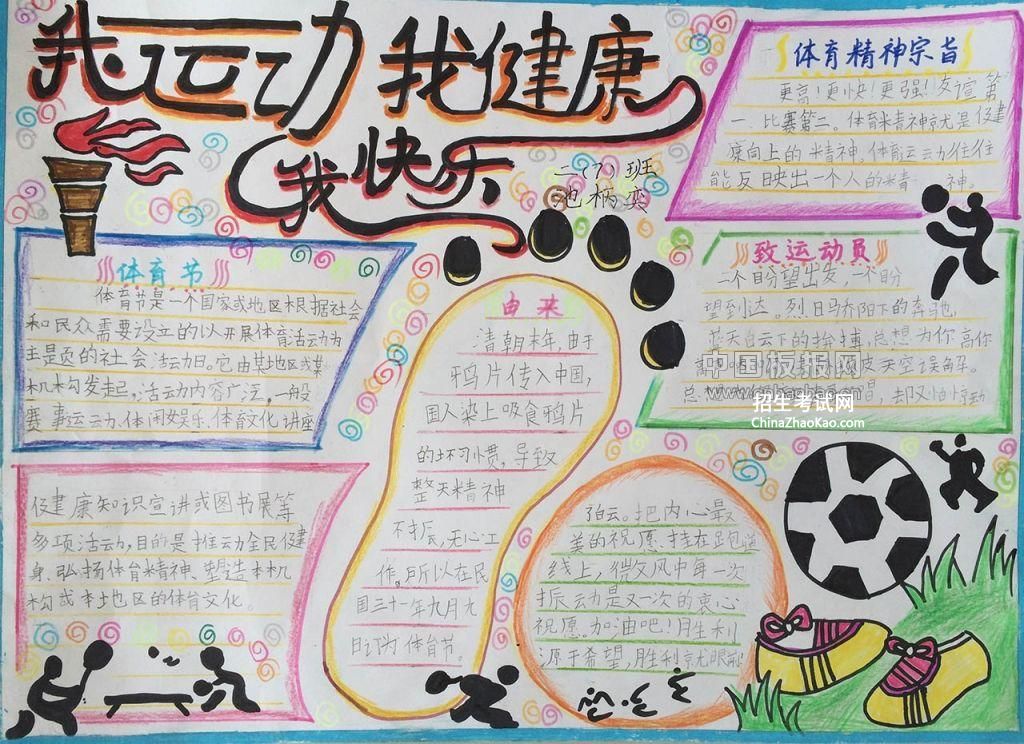 我运动 我健康
我快乐
二(7)班
体育精神宗旨
更高!更快!更强!友谊第
一.比赛第二。体育精神就是健
康向上的精神,体育运动往往
能反映出一个人的精 神。
体育节
体育节是一个国家或地区根据社会
和民众需要设立的以开展体育活动为
主题的社会活动日。它由某地区或某
机构发起,活动内容广泛,一般
赛事运动、体闲娱乐、体育文化讲座
健康知识宣讲或图书展等
多项活动,目的是推动全民健
身、弘扬体育精神、塑造本机
构或本地区的体育文化。
由来
清朝末年,由于
鸦片传入中国,
国人染上吸食鸦片
的坏习惯,导致
整天精神
不振,无心工
作。所以在民
国三十一年九月九
日订为体育节。
致运动员
一个目的望出发,一个目
望到达。烈日骄阳下的奔驰,
蓝天白云下的拚搏,总想为你高
天空误解。
总 唱,却又怕惊动
白云。把内心最
美的祝愿,挂在跑道
线上,微风中每一次
振动是又一次的衷心
祝愿。加油吧!胜利
源于希望,胜利就在眼前!
中国板报网
招生考试网
ChinaZhaoKao.com